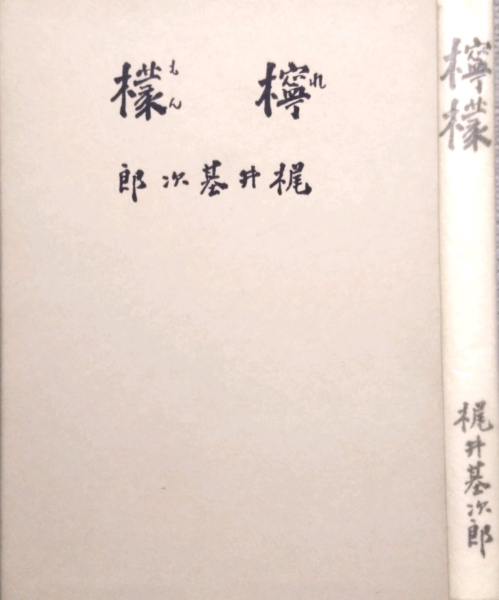 檸檬
れもん
梶井基次郎
檸檬
梶井基次郎